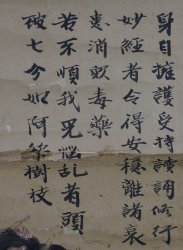 身自擁護受持讀誦修行
妙經者令得安穩離諸衰
患消眾毒藥
若不順我咒惱乱者頭
破七分如阿梨樹枝